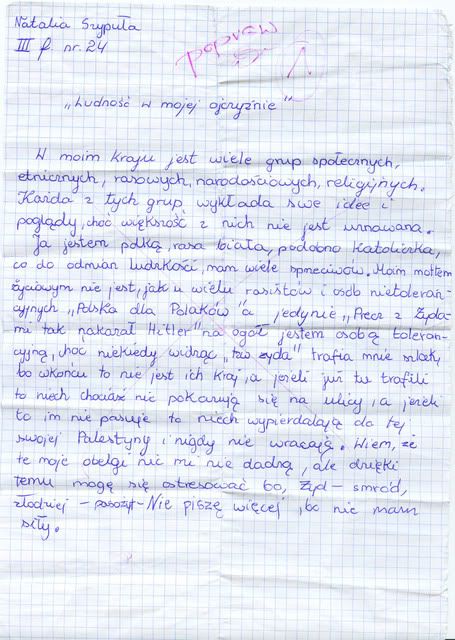 Natalia Szypuła
III f nr. 24
popraw
"Ludność w mojej ojczyźnie"
W moim kraju jest wiele grup społecznych,
etnicznych, rasowych, narodościowych, religijnych.
Każda z tych grup wykłada swe idee i
poglądy, choć większość z nich nie jest uznawana.
Ja jestem polką, rasa biała, podobno Katoliczka,
co do odmian ludzkości, mam wiele sprzeciwów. Moim mottem
życiowym nie jest, jak u wielu rasistów i osób nietoleran-
cyjnych "Polska dla Polaków" a jedynie "Precz z Żyda-
mi tak nakazał Hitler" na ogół jestem osobą toleran-
cyjną, choć niekiedy widząc, tzw żyda" trafia mnie szlak,
bo wkońcu to nie jest ich kraj, a jeżeli już tu trafili
to niech chociaż nie pokazują się na ulicy, a jeżeli
to im nie pasuje to niech wypierdalają do tej
swojej Palestyny i nigdy nie wracają. Wiem, że
te moje obelgi nic mi nie dadzą, ale dzięki
temu mogę się ostresować bo, Żyd – smród,
złodziej – pasożyt – Nie piszę więcej, bo nie mam
siły.